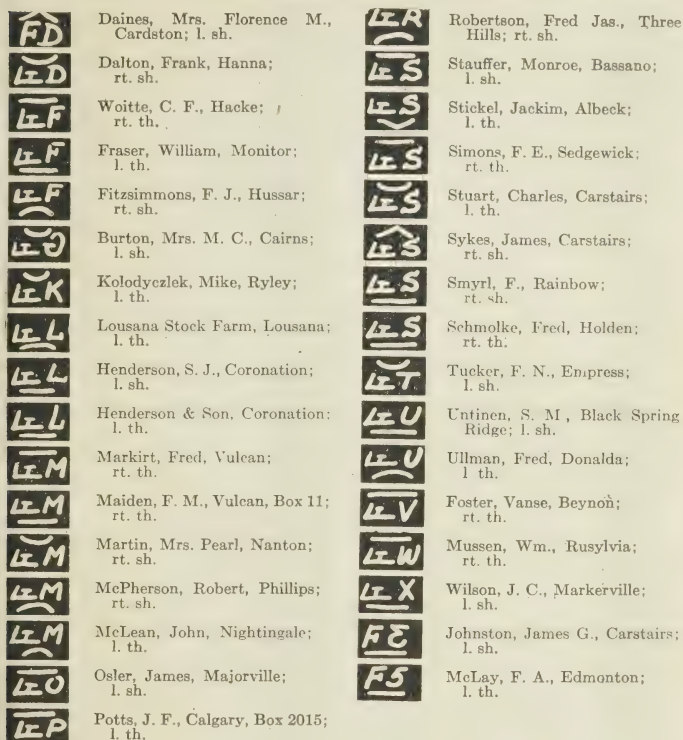 FD
Daines, Mrs. Florence M.,
Cardston; l. sh.
Dalton, Frank, Hanna;
rt. sh.
Woitte, C. F., Hacke;
rt. th.
Fraser, William, Monitor;
l. th.
Fitzsimmons, F. J., Hussar;
rt. sh.
Burton, Mrs. M. C., Cairns;
l. sh.
Kolodyczlek, Mike, Ryley;
l. th.
Lousana Stock Farm, Lousana;
l. th.
Henderson, S. J., Coronation;
l. sh.
Henderson & Son, Coronation:
l. th.
Markirt, Fred, Vulcan;
rt. th.
Maiden, F. M., Vulcan, Box 11;
rt. th.
Martin, Mrs. Pearl, Nanton;
rt. sh.
McPherson, Robert, Phillips;
rt. sh.
McLean, John, Nightingale;
l. th.
Osler, James, Majorville;
l. sh.
Potts, J. F., Calgary, Box 2015;
l. th.
Robertson, Fred Jas., Three
Hills; rt. sh.
Stauffer, Monroe, Bassano;
l. sh.
Stickel, Jackim, Albeck;
l. th.
Simons, F. E., Sedgewick;
rt. th.
Stuart, Charles, Carstairs;
l. th.
Sykes, James, Carstairs;
rt. sh.
Smyrl, F., Rainbow;
rt. sh.
Schmolke, Fred, Holden;
rt. th.
Tucker, F. N., Empress;
l. sh.
Untinen, S. M , Black Spring
Ridge; l. sh.
Ullman, Fred, Donalda;
l th.
Foster, Vanse, Beynon;
rt. th.
Mussen, Wm., Rusylvia;
rt. th.
Wilson, J. C., Markerville;
l. sh.
Johnston, James G., Carstairs;
l. sh.
F5
McLay, F. A., Edmonton;
l. th.